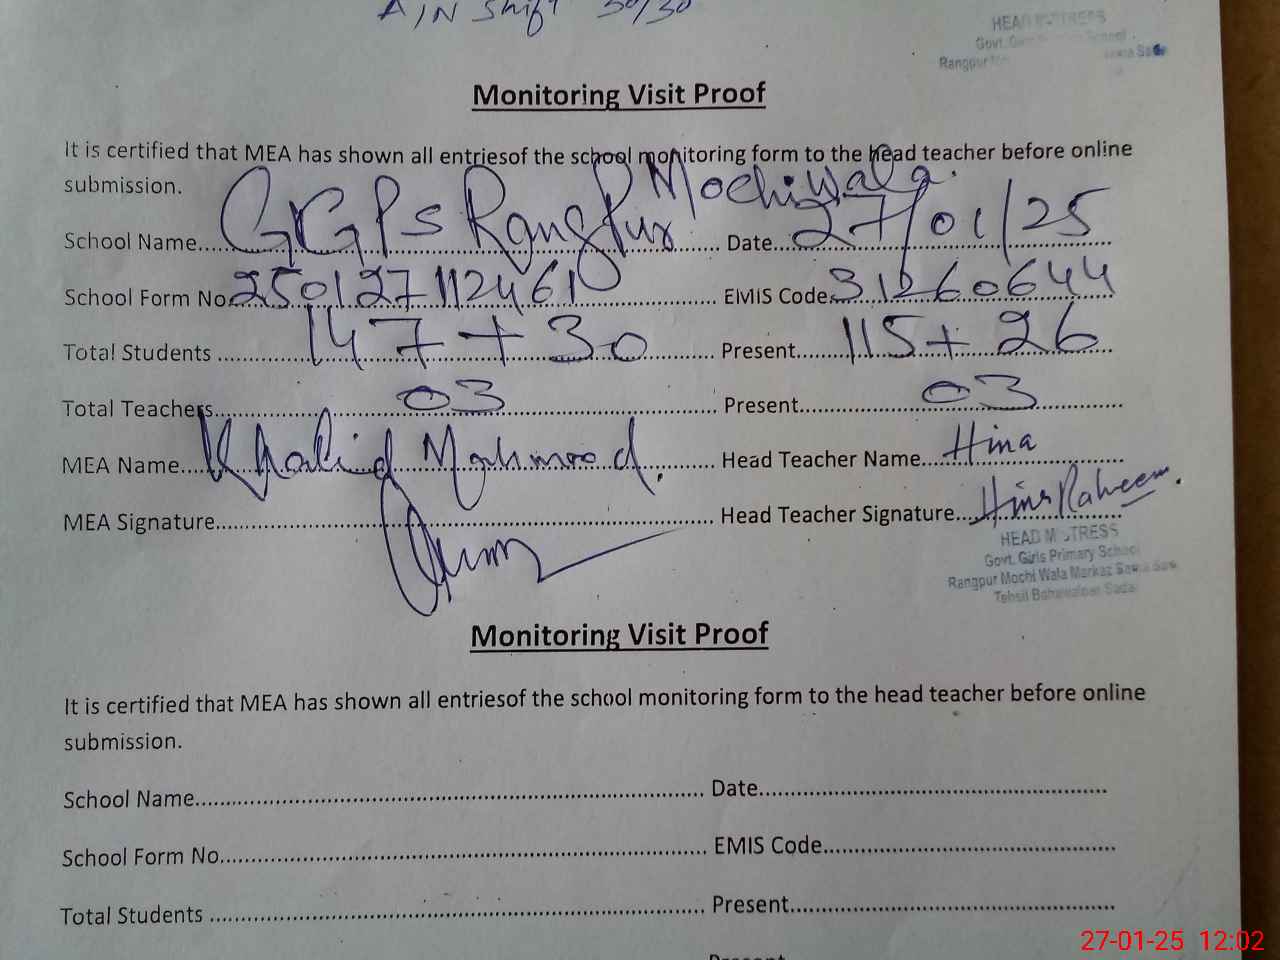 A/N Shift 30/30
HEAD MISTRESS
Govt.
Rangpur
Monitoring Visit Proof
It is certified that MEA has shown all entriesof the school monitoring form to the head teacher before online
submission.
School Name GGPS Rangpur Mochiwala. Date 27/01/25
School Form No 2501271124610 EMIS Code 31260644
Total Students 147 + 30 Present 115 + 26
Total Teachers 03 Present 03
MEA Name Khalid Mahmood. Head Teacher Name Hina
MEA Signature Head Teacher Signature Hina Raheem.
HEAD MISTRESS
Govt. Girls Primary School
Rangpur Mochi Wala Markaz
Tehsil Bahawalpur Sadar
Monitoring Visit Proof
It is certified that MEA has shown all entriesof the school monitoring form to the head teacher before online
submission.
School Name Date
School Form No EMIS Code
Total Students Present
Present
27-01-25 12:02